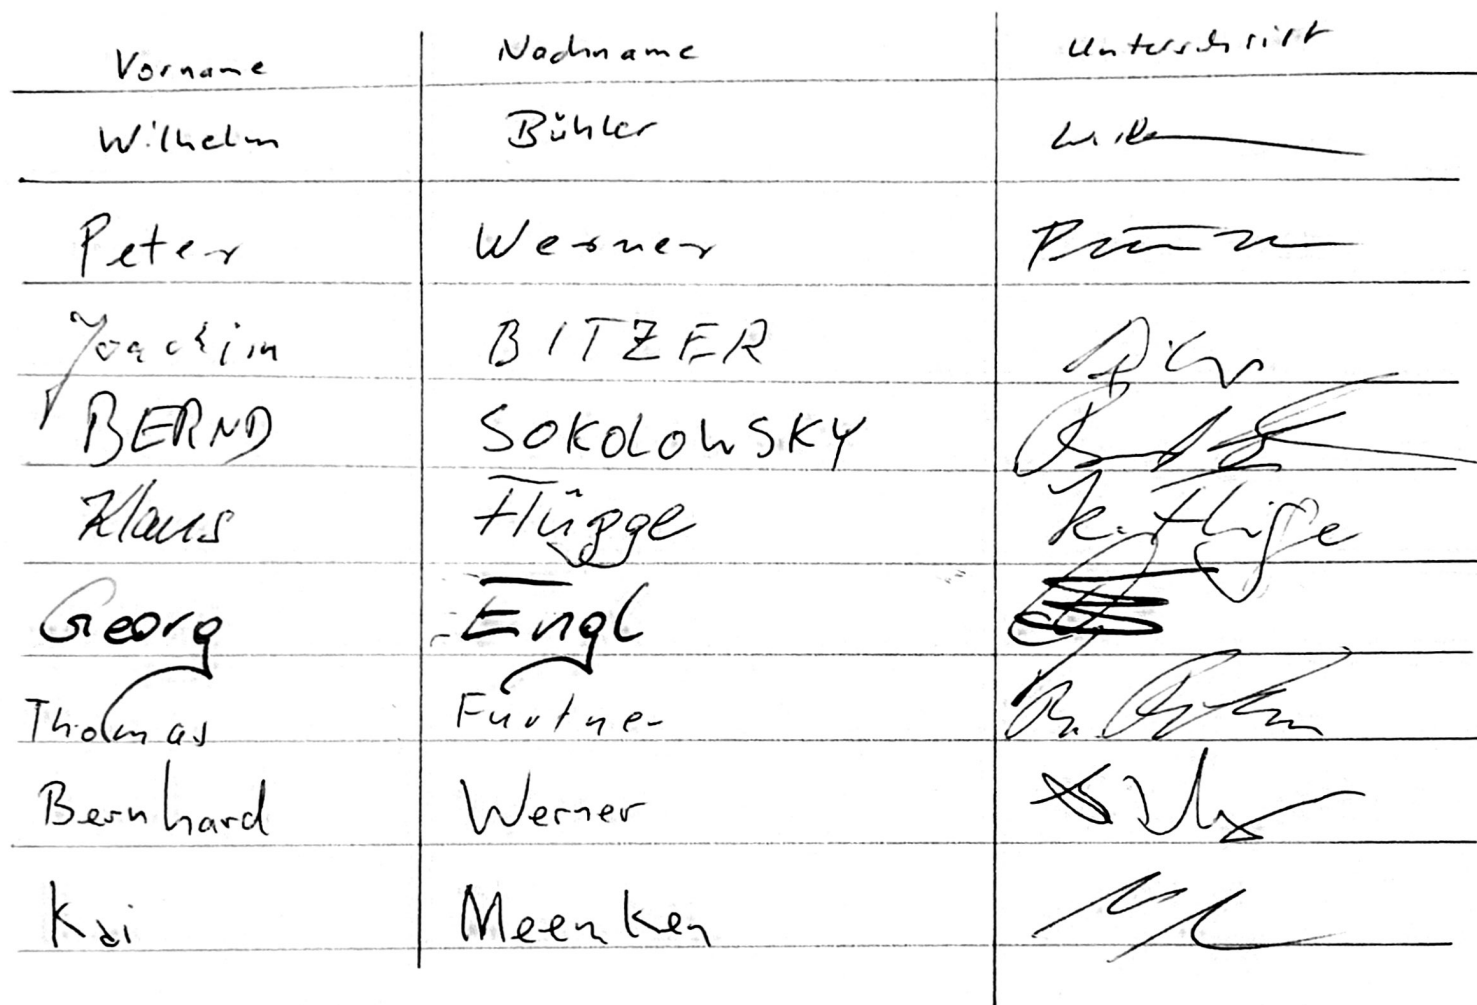 Vorname Nachname Unterschrift
Wilhelm Bühler
Peter Werner
Joachim BITZER
BERND SOKOLOWSKY
Klaus Flügge K. Flügge
Georg Engl
Thomas Furtner
Bernhard Werner
Kai Meenken